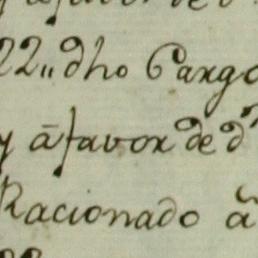 22,, dho Cargo
y ā favor de dn
Racionado ā